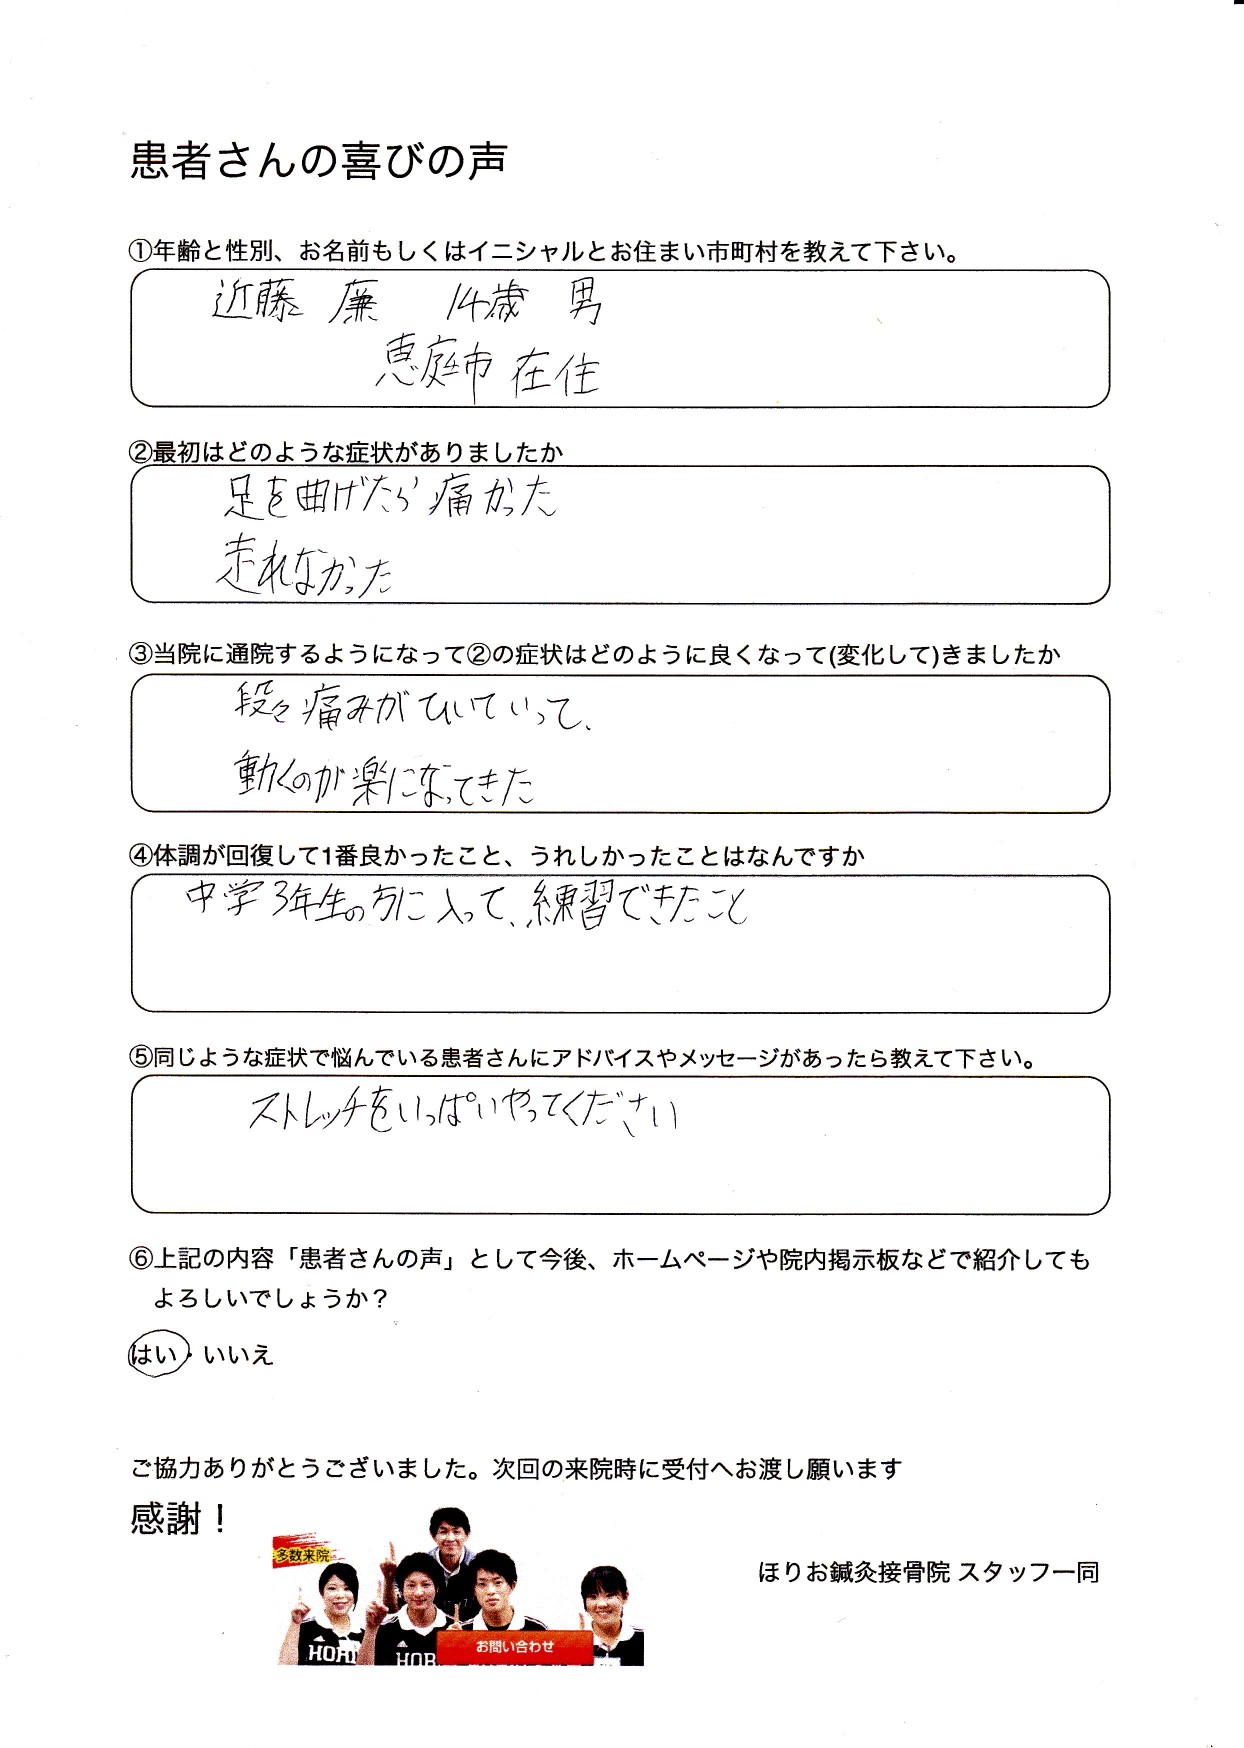 患者さんの喜びの声
①年齢と性別、お名前もしくはイニシャルとお住まい市町村を教えて下さい。
近藤 廉 14歳 男
恵庭市 在住
②最初はどのような症状がありましたか
足を曲げたら痛かった
走れなかった
③当院に通院するようになって②の症状はどのように良くなって(変化して)きましたか
段々痛みがひいていって、
動くのが楽になってきた
④体調が回復して1番良かったこと、うれしかったことはなんですか
中学3年生の方に入って、練習できたこと
⑤同じような症状で悩んでいる患者さんにアドバイスやメッセージがあったら教えて下さい。
ストレッチをいっぱいやってください
⑥上記の内容「患者さんの声」として今後、ホームページや院内掲示板などで紹介しても
よろしいでしょうか？
はい・いいえ
ご協力ありがとうございました。次回の来院時に受付へお渡し願います
感謝！
多数来院
ほりお鍼灸接骨院 スタッフ一同
お問い合わせ
HORI
HOR